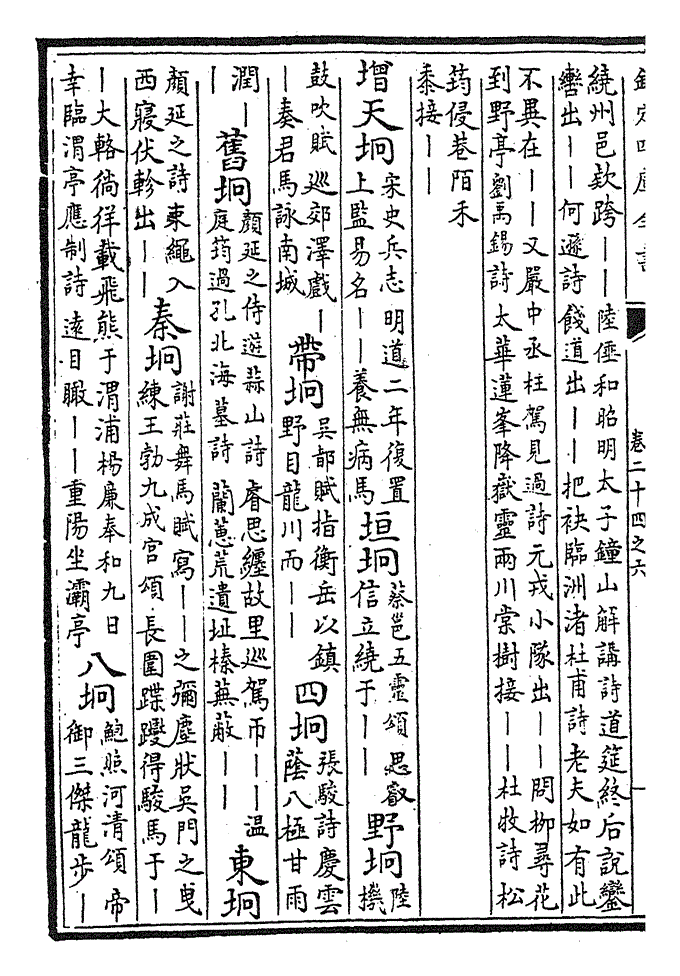 欽定四庫全書
卷二十四之六
繞州邑欵跨——陸倕和昭明太子鐘山解講詩道筵終后說鑾
轡出——何遜詩餞道出——把袂臨洲渚杜甫詩老夫如有此
不異在——又嚴中丞枉駕見過詩元戎小隊出——問柳尋花
到野亭劉禹錫詩太華蓮峯降嶽靈兩川棠樹接——杜牧詩松
筠侵巷陌禾
黍接——
增天坰
宋史兵志明道二年復置
上監易名——養無病馬
垣坰
蔡邕五靈頌思叡
信立繞于——
野坰
陸
機
鼓吹賦巡郊澤戲—
—奏君馬詠南城
帶坰
吳都賦指衡岳以鎮
野目龍川而——
四坰
張駿詩慶雲
蔭八極甘雨
潤—
—
舊坰
顏延之侍遊蒜山詩睿思纏故里巡駕帀——溫
庭筠過孔北海墓詩蘭蕙荒遺址榛蕪蔽——
東坰
顏延之詩東繩入
西寢伏軫出——
秦坰
謝莊舞馬賦寫——之彌塵狀吳門之曳
練王勃九成宮頌長圍蹀躞得駿馬于—
—大輅徜徉載飛熊于渭浦楊廉奉和九日
幸臨渭亭應制詩遠目瞰——重陽坐灞亭
八坰
鮑照河清頌帝
御三傑龍步—